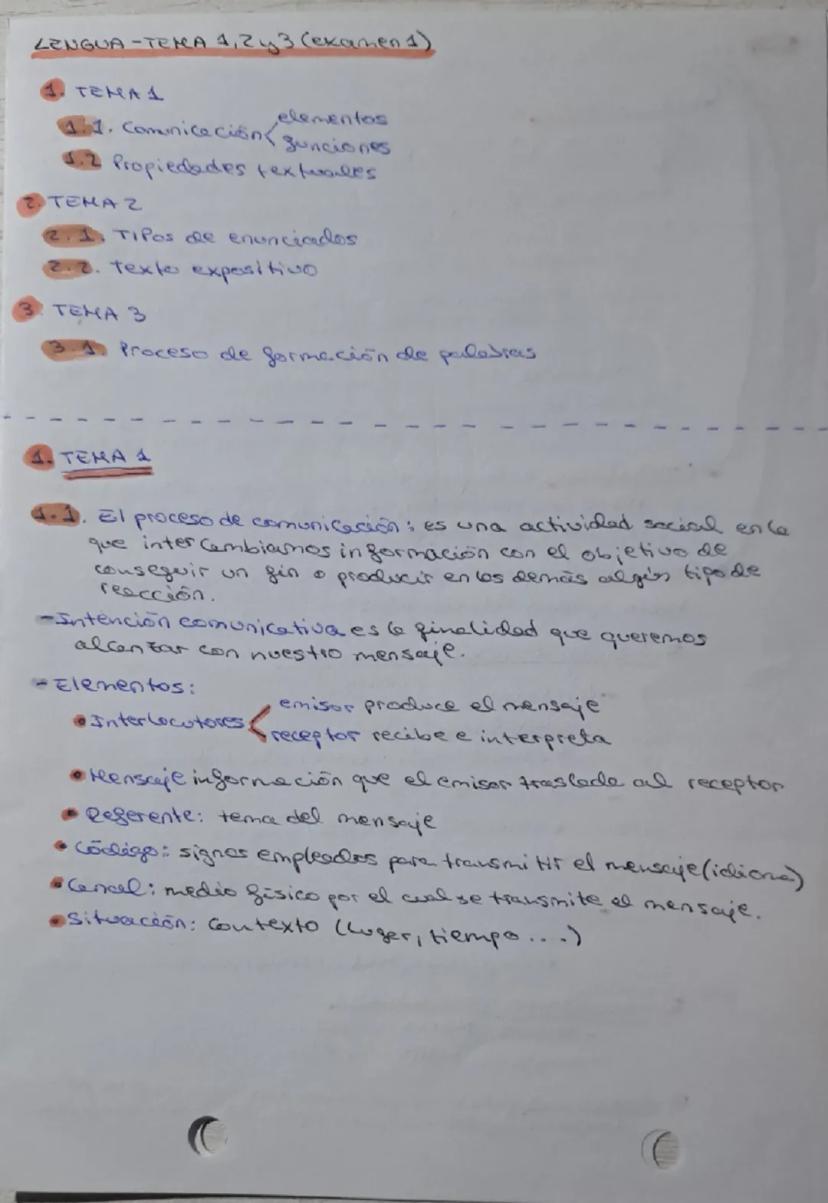 LENGUA - TEMA 1, 2 y 3 (examen 1)
1. TEMA 1
1.1. Comunicación < elementos
funciones
1.2 Propiedades textuales
2. TEMA 2
2.1. TIPos de enunciados
2.2. texto expositivo
3 TEMA 3
3.1. Proceso de formación de palabras
1. TEMA 1
1.1. El proceso de comunicación: es una actividad social en la
que intercambiamos información con el objetivo de
conseguir un fin o producir en los demás algún tipo de
reacción.
- Intención comunicativa es la finalidad que queremos
alcanzar con nuestro mensaje.
- Elementos:
• Interlocutores < emisor produce el mensaje
receptor recibe e interpreta
• Mensaje información que el emisor traslada al receptor
• Referente: tema del mensaje
• Código: signos empleados para transmitir el mensaje (idioma)
• Canal: medio físico por el cual se transmite el mensaje.
• Situación: Contexto (lugar, tiempo....)